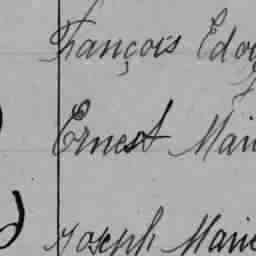 François Edou
Ernest Mari
Joseph Marie